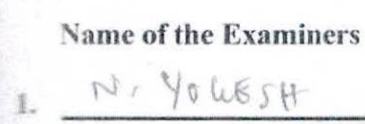 Name of the Examiners
1. N. YOGESH